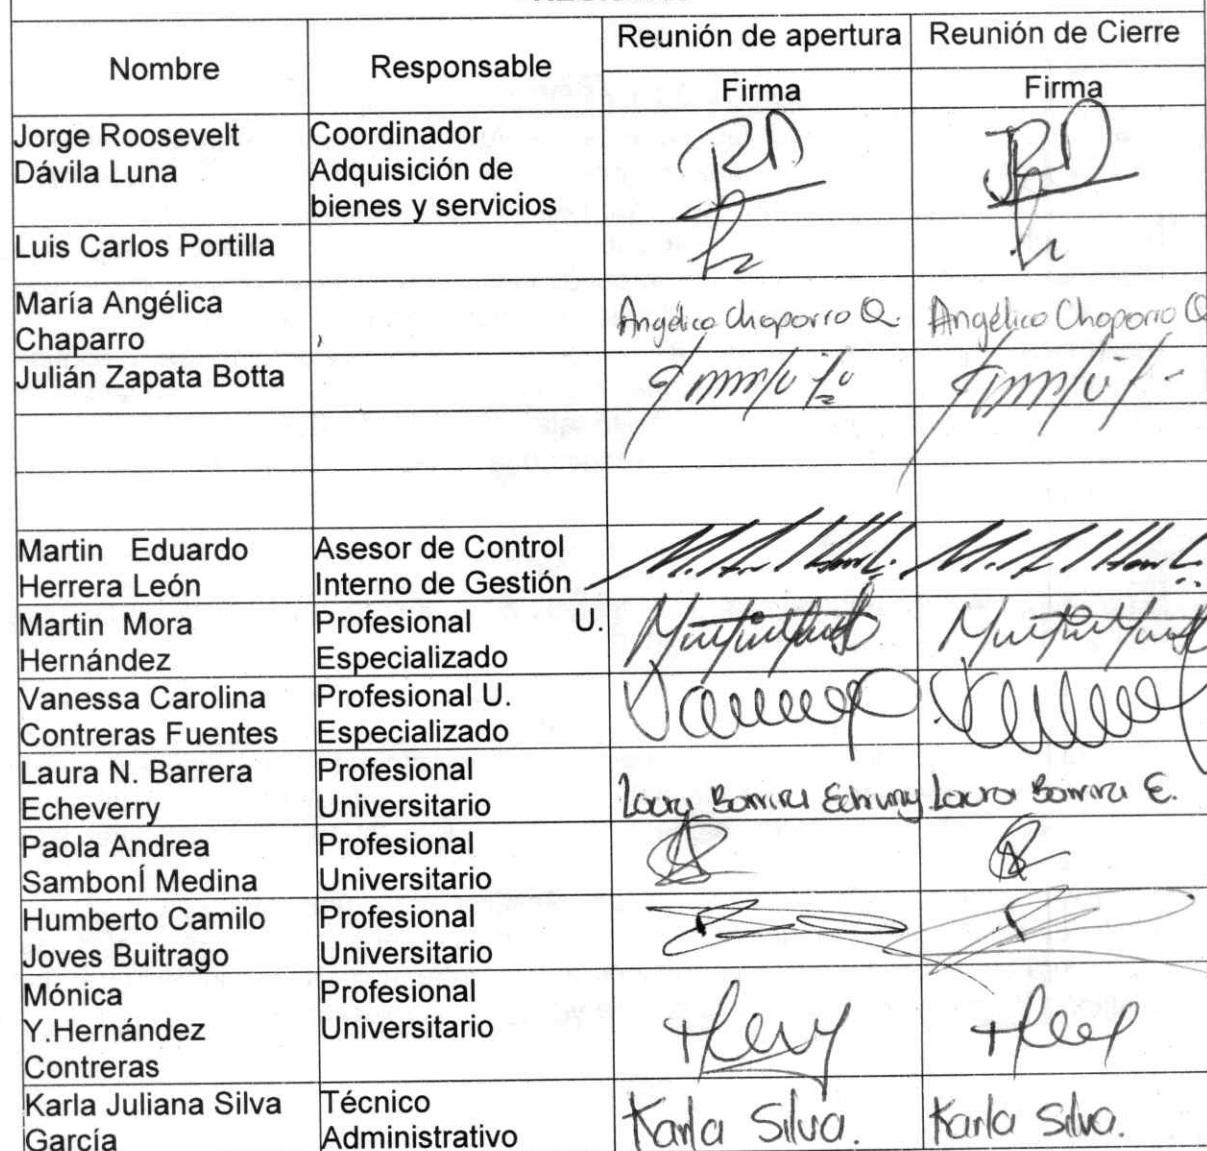 Nombre
Responsable
Reunión de apertura
Reunión de Cierre
Firma
Firma
Jorge Roosevelt
Dávila Luna
Coordinador
Adquisición de
bienes y servicios
RD
JRD
Luis Carlos Portilla
María Angélica
Chaparro
Angélica Chaparro Q.
Angélica Chaparro Q
Julián Zapata Botta
Martin Eduardo
Herrera León
Asesor de Control
Interno de Gestión
Martin Mora
Hernández
Profesional U.
Especializado
Vanessa Carolina
Contreras Fuentes
Profesional U.
Especializado
Laura N. Barrera
Echeverry
Profesional
Universitario
Laura Barrera Echeverry
Laura Barrera E.
Paola Andrea
SambonÍ Medina
Profesional
Universitario
Humberto Camilo
Joves Buitrago
Profesional
Universitario
Mónica
Y.Hernández
Contreras
Profesional
Universitario
Karla Juliana Silva
García
Técnico
Administrativo
Karla Silva.
Karla Silva.